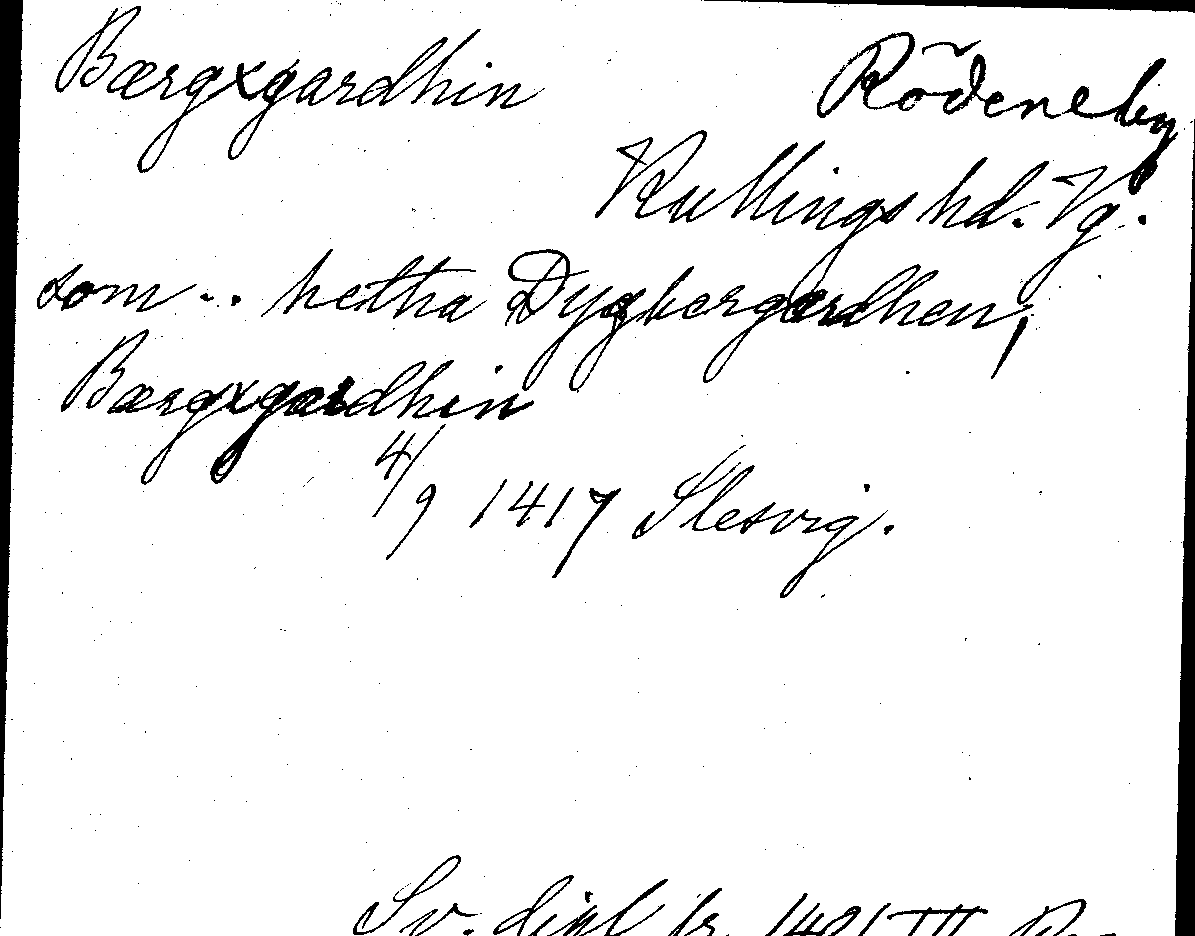 Bærgxgardhin Rödeneby
Kullings hd. Vg.
som .. hetha Dygbergardhen,
Bærgxgardhin
4/9 1417 Slesvig.
Sv. dipl. fr. 1401 III